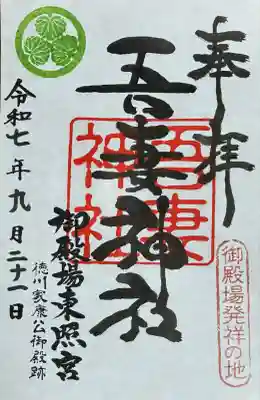 奉拝
吾妻神社
吾妻
神社
御殿場発祥の地
御殿場東照宮
徳川家康公御殿跡
令和七年九月二十一日